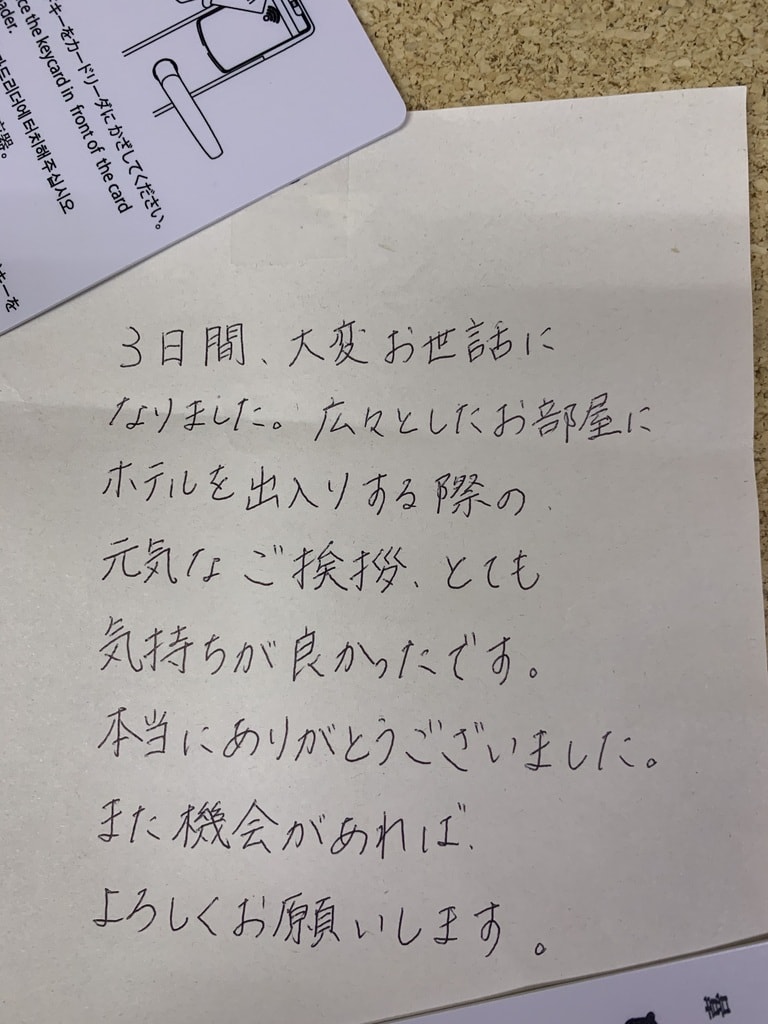 キーをカードリーダにかざしてください。
ce the keycard in front of the card
ader.
드리더에 터치해 주십시오
器。
キーを
3日間、大変お世話に
なりました。広々としたお部屋に
ホテルを出入りする際の、
元気なご挨拶、とても
気持ちが良かったです。
本当にありがとうございました。
また機会があれば、
よろしくお願いします。